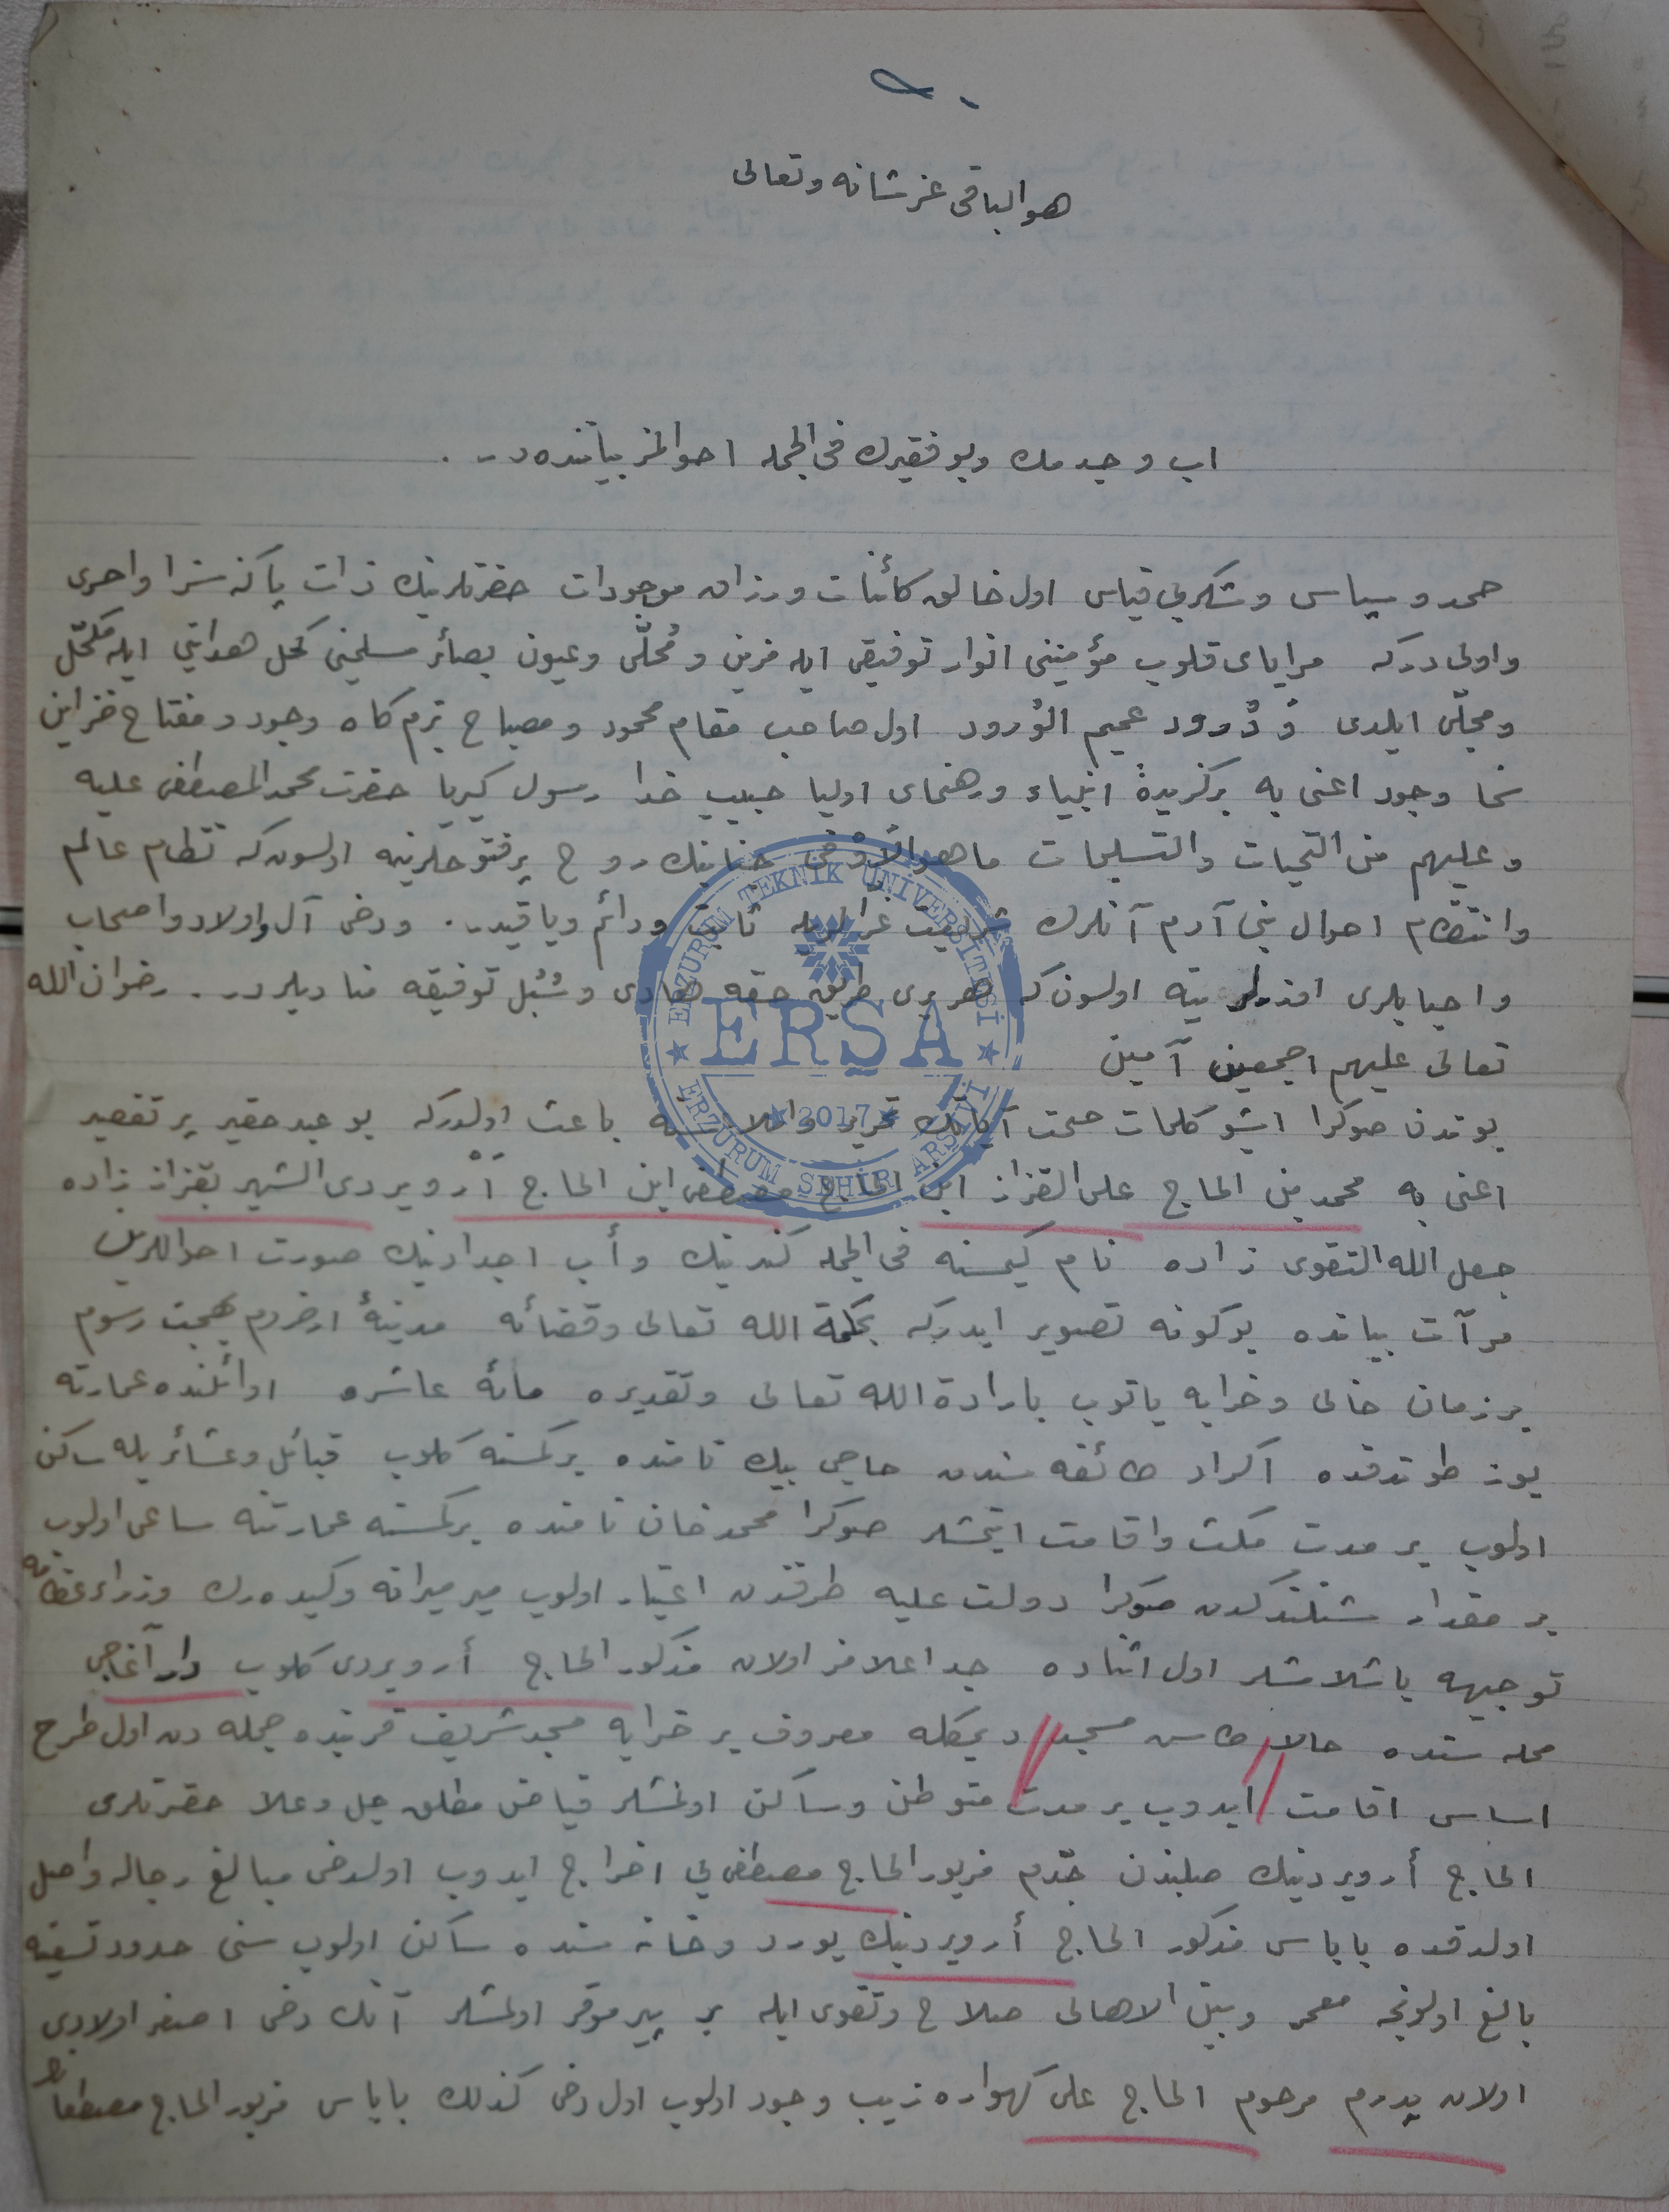 هو الباقی عز شانه وتعالی
اب وجدمك وبو فقیرك فی الجمله احوالمز بیاننده در .
حمد و سپاس وشكر بی قیاس اول خالق كائنات ورزاق موجودات حضرتلرینك ذات پاكنه سزا واحری
واولی دركه مرایای قلوب مؤمنینی انوار توفیقی ایله مزین ومُحلّی وعیون بصائر مسلمینی كحل هدایتی ایله مكحّل
ومجلّی ایلدی وُ دُرود عمیم الوُرود اول صاحب مقام محمود ومصباح بزم كاه وجود ومفتاح خزاین
سخا وجود اعنی به بركزیدهٔ انبیاء ورهنمای اولیا حبیب خدا رسول كبریا حضرت محمد المصطفی علیه
وعلیهم من التحیات والتسلیمات ما هو الأوْفی جنابنك روح پرفتوحلرینه اولسون كه نظام عالم
وانتظام احوال بنی آدم آنلرك شریعت غرالریله ثابت ودائم وباقیدر . ودخی آل واولاد واصحاب
واحبابلری افندلرینه اولسون كه هر بری طریق حقه هادی وسُبُل توفیقه منادیلردر . رضوان الله
تعالی علیهم اجمعین آمین
بوندن صوكرا اشبو كلمات حكمت آیاتك تحریر واملاسنه باعث اولدركه بو عبد حقیر پر تقصیر
اعنی به محمد بن الحاج علی القزاز ابن الحاج مصطفی ابن الحاج أرویردی الشهیر بقزاز زاده
جعل الله التقوی زاده نام كیمسنه فی الجمله كندینك وأب اجدادینك صورت احواللرین
مرآت بیانده بوكونه تصویر ایدركه بحكمة الله تعالی وقضائه مدینهٔ ارضروم بهجت رسوم
بر زمان خالی وخرابه یاتوب بارادة الله تعالی وتقدیره مائهٔ عاشره اوائلنده عمارته
یوز طوتدقده اكراد طائفه سندن حاجی بیك نامنده بر كمسنه كلوب قبائل وعشائریله ساكن
اولوب بر مدت مكث واقامت ایتمشلر صوكرا محمد خان نامنده بر كمسنه عمارتنه ساعی اولوب
بر مقدار شنلندكدن صوكرا دولت علیه طرفندن اعتبار اولوب میر میرانه وكیده رك وزراء عظامه
توجیهه باشلامشلر اول اثناده جد اعلامز اولان مذكور الحاج أرویردی كلوب دار آغاجی
محله سنده حالا طاس مسجد دیمكله معروف بر خرابه مسجد شریف قربنده جمله دن اول طرح
اساس اقامت ایدوب بر مدت متوطن وساكن اولمشلر فیاض مطلق جل وعلا حضرتلری
الحاج أرویردینك صلبندن جدّم مزبور الحاج مصطفی یی اخراج ایدوب اولدخی مبالغ رجاله واصل
اولدقده باباسی مذكور الحاج أرویردینك یورد وخانه سنده ساكن اولوب سنی حدود تسعینه
بالغ اولونجه معمر وبین الاهالی صلاح وتقوی ایله بر پیر موقر اولمشلر آنك دخی اصغر اولادی
اولان پدرم مرحوم الحاج علی كهواره زیب وجود اولوب اول دخی كذلك باباسی مزبور الحاج مصطفی